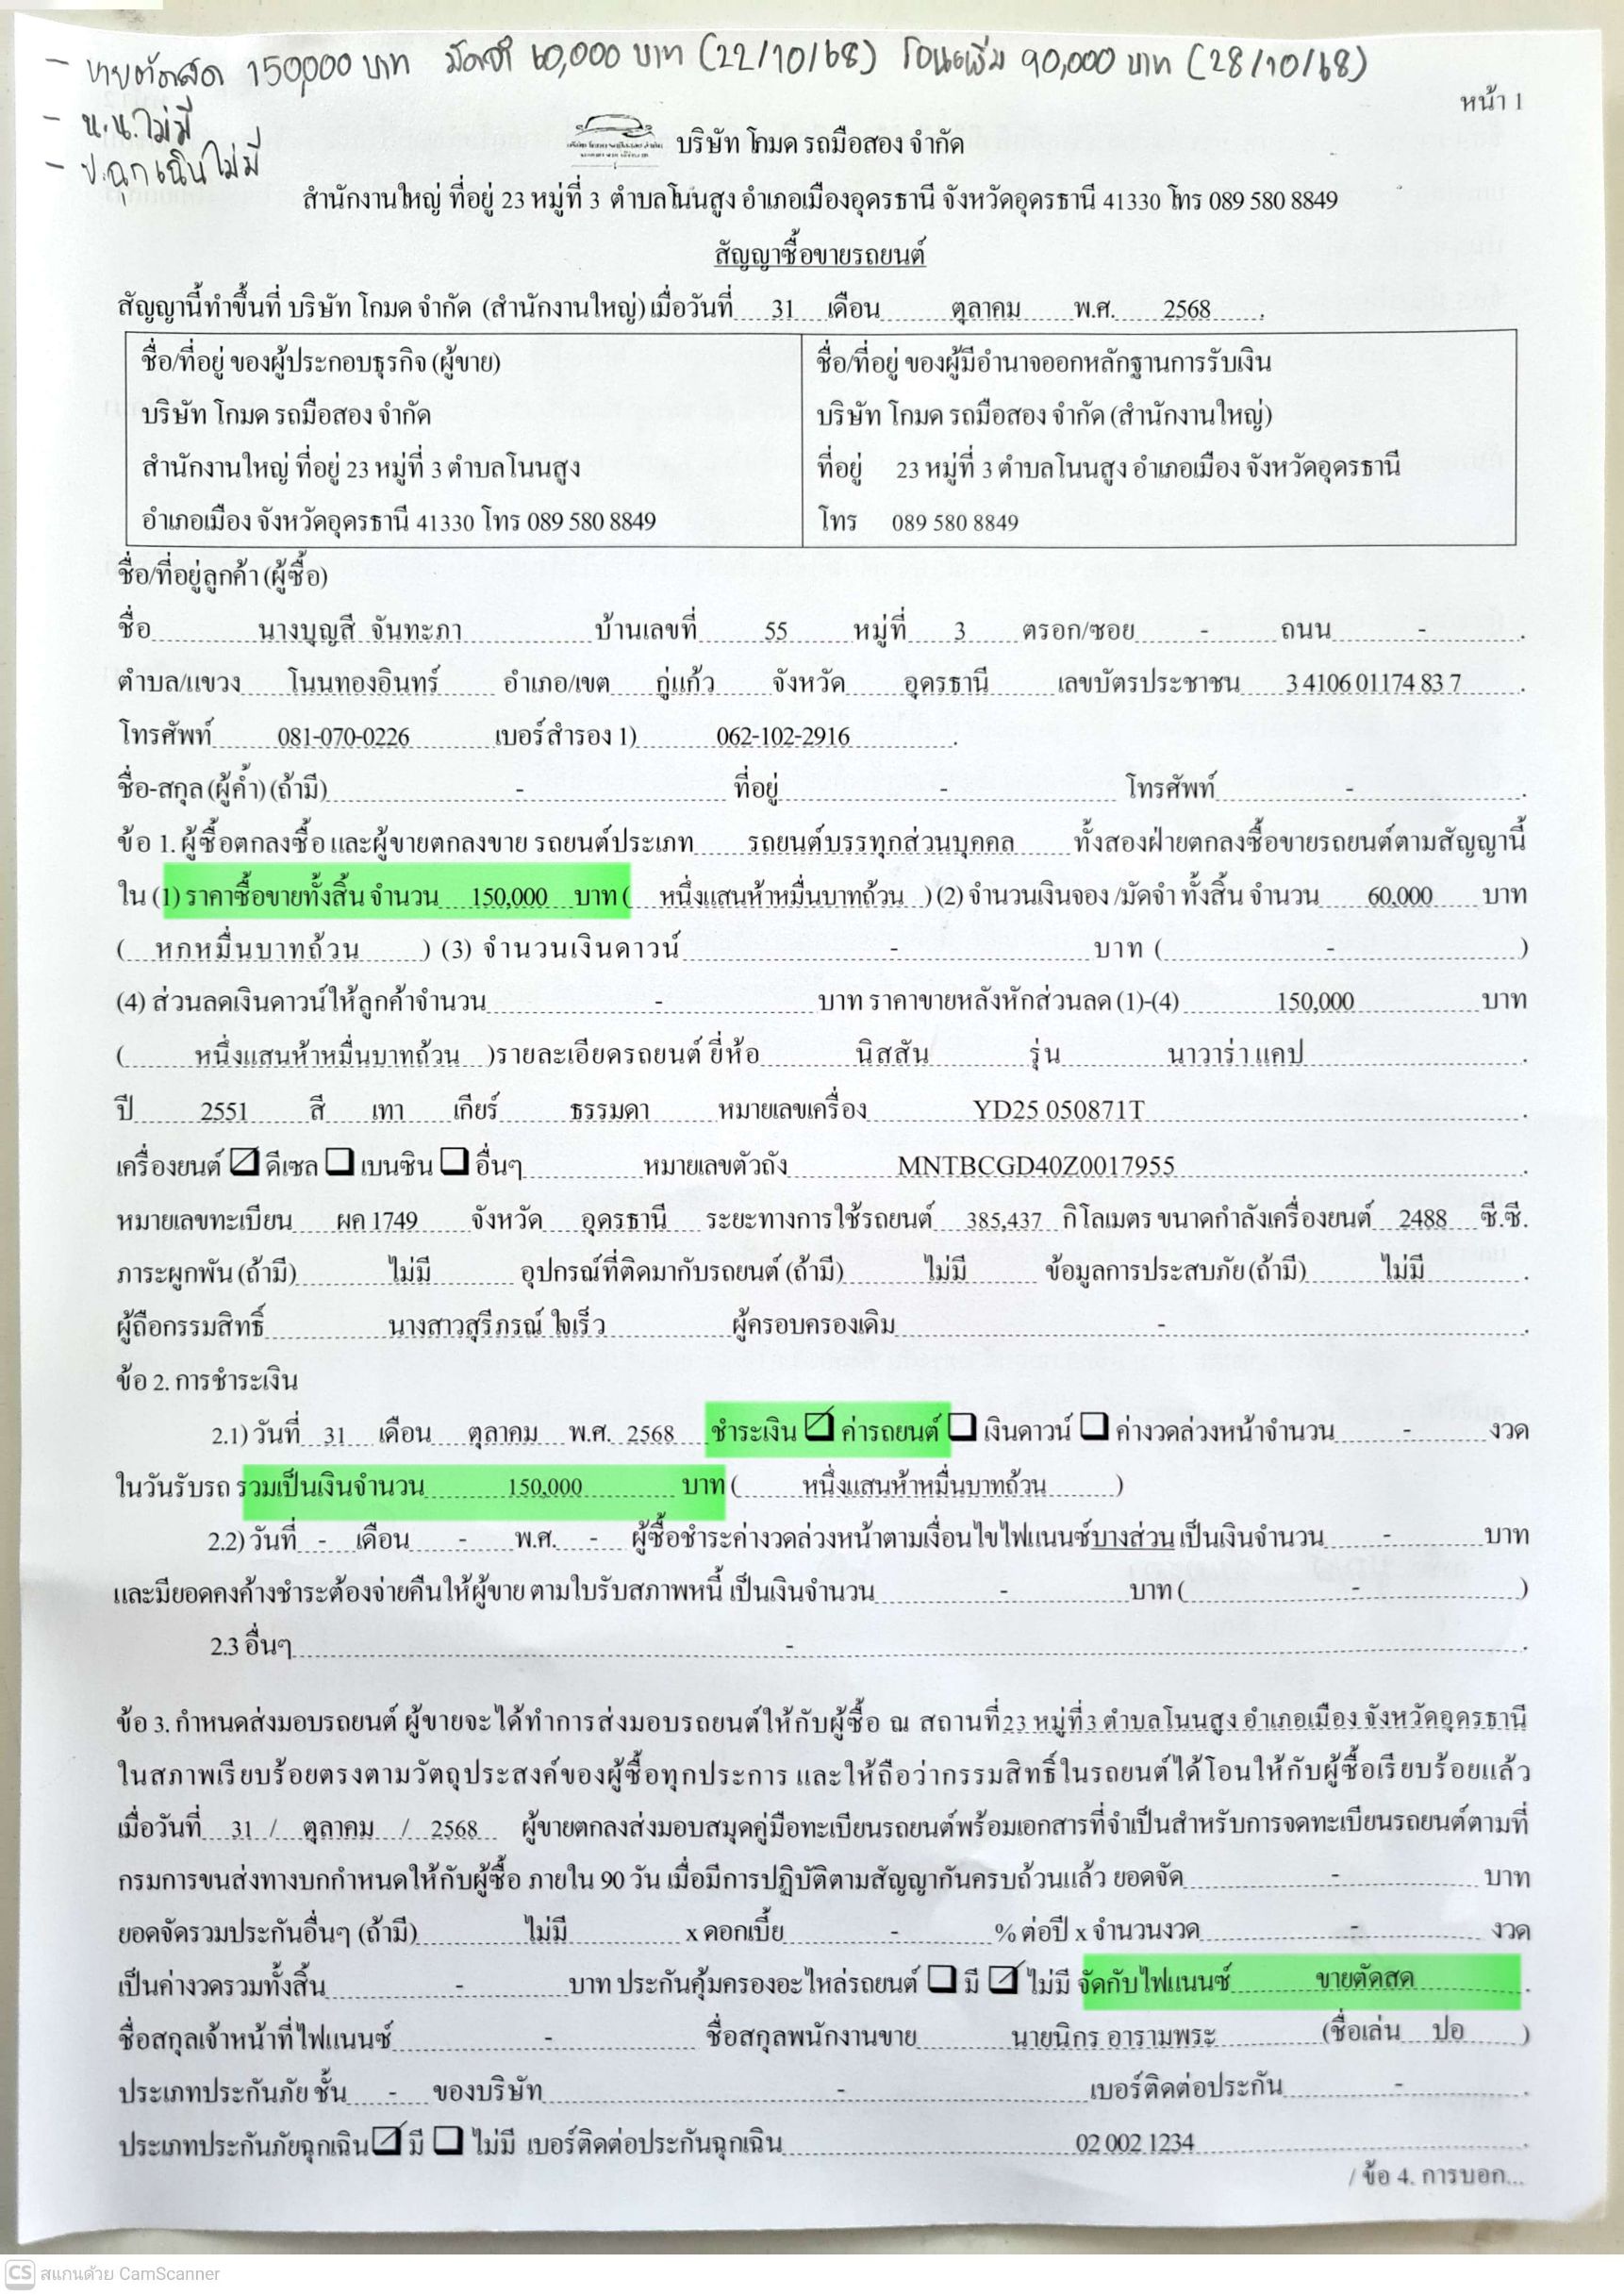 - ขายตัดสด 150,000 บาท มัดจำ 60,000 บาท (22/10/68) โอนเพิ่ม 90,000 บาท (28/10/68)
- น.น.ไม่มี
- ป.ฉุกเฉินไม่มี
หน้า 1
บริษัท โกมด รถมือสอง จำกัด
สำนักงานใหญ่ ที่อยู่ 23 หมู่ที่ 3 ตำบลโนนสูง อำเภอเมืองอุดรธานี จังหวัดอุดรธานี 41330 โทร 089 580 8849
สัญญาซื้อขายรถยนต์
สัญญานี้ทำขึ้นที่ บริษัท โกมด จำกัด (สำนักงานใหญ่) เมื่อวันที่ 31 เดือน ตุลาคม พ.ศ. 2568
ชื่อ/ที่อยู่ ของผู้ประกอบธุรกิจ (ผู้ขาย)
บริษัท โกมด รถมือสอง จำกัด
สำนักงานใหญ่ ที่อยู่ 23 หมู่ที่ 3 ตำบลโนนสูง
อำเภอเมือง จังหวัดอุดรธานี 41330 โทร 089 580 8849
ชื่อ/ที่อยู่ ของผู้มีอำนาจออกหลักฐานการรับเงิน
บริษัท โกมด รถมือสอง จำกัด (สำนักงานใหญ่)
ที่อยู่ 23 หมู่ที่ 3 ตำบลโนนสูง อำเภอเมือง จังหวัดอุดรธานี
โทร 089 580 8849
ชื่อ/ที่อยู่ลูกค้า (ผู้ซื้อ)
ชื่อ นางบุญสี จันทะภา บ้านเลขที่ 55 หมู่ที่ 3 ตรอก/ซอย - ถนน -
ตำบล/แขวง โนนทองอินทร์ อำเภอ/เขต กู่แก้ว จังหวัด อุดรธานี เลขบัตรประชาชน 3 4106 01174 83 7
โทรศัพท์ 081-070-0226 เบอร์สำรอง 1) 062-102-2916
ชื่อ-สกุล (ผู้ค้ำ) (ถ้ามี) - ที่อยู่ - โทรศัพท์ -
ข้อ 1. ผู้ซื้อตกลงซื้อ และผู้ขายตกลงขาย รถยนต์ประเภท รถยนต์บรรทุกส่วนบุคคล ทั้งสองฝ่ายตกลงซื้อขายรถยนต์ตามสัญญานี้
ใน (1) ราคาซื้อขายทั้งสิ้น จำนวน 150,000 บาท ( หนึ่งแสนห้าหมื่นบาทถ้วน ) (2) จำนวนเงินจอง /มัดจำ ทั้งสิ้น จำนวน 60,000 บาท
( หกหมื่นบาทถ้วน ) (3) จำนวนเงินดาวน์ - บาท ( - )
(4) ส่วนลดเงินดาวน์ให้ลูกค้าจำนวน - บาท ราคาขายหลังหักส่วนลด (1)-(4) 150,000 บาท
( หนึ่งแสนห้าหมื่นบาทถ้วน )รายละเอียดรถยนต์ ยี่ห้อ นิสสัน รุ่น นาวาร่า แคป
ปี 2551 สี เทา เกียร์ ธรรมดา หมายเลขเครื่อง YD25 050871T
เครื่องยนต์ ☑ ดีเซล ☐ เบนซิน ☐ อื่นๆ หมายเลขตัวถัง MNTBCGD40Z0017955
หมายเลขทะเบียน ผค 1749 จังหวัด อุดรธานี ระยะทางการใช้รถยนต์ 385,437 กิโลเมตร ขนาดกำลังเครื่องยนต์ 2488 ซี.ซี.
ภาระผูกพัน (ถ้ามี) ไม่มี อุปกรณ์ที่ติดมากับรถยนต์ (ถ้ามี) ไม่มี ข้อมูลการประสบภัย (ถ้ามี) ไม่มี
ผู้ถือกรรมสิทธิ์ นางสาวสุรีภรณ์ ใจเร็ว ผู้ครอบครองเดิม -
ข้อ 2. การชำระเงิน
2.1) วันที่ 31 เดือน ตุลาคม พ.ศ. 2568 ชำระเงิน ☑ ค่ารถยนต์ ☐ เงินดาวน์ ☐ ค่างวดล่วงหน้าจำนวน - งวด
ในวันรับรถ รวมเป็นเงินจำนวน 150,000 บาท ( หนึ่งแสนห้าหมื่นบาทถ้วน )
2.2) วันที่ - เดือน - พ.ศ. - ผู้ซื้อชำระค่างวดล่วงหน้าตามเงื่อนไขไฟแนนซ์บางส่วน เป็นเงินจำนวน - บาท
และมียอดคงค้างชำระต้องจ่ายคืนให้ผู้ขาย ตามใบรับสภาพหนี้ เป็นเงินจำนวน - บาท ( - )
2.3 อื่นๆ -
ข้อ 3. กำหนดส่งมอบรถยนต์ ผู้ขายจะได้ทำการส่งมอบรถยนต์ให้กับผู้ซื้อ ณ สถานที่ 23 หมู่ที่ 3 ตำบลโนนสูง อำเภอเมือง จังหวัดอุดรธานี
ในสภาพเรียบร้อยตรงตามวัตถุประสงค์ของผู้ซื้อทุกประการ และให้ถือว่ากรรมสิทธิ์ในรถยนต์ได้โอนให้กับผู้ซื้อเรียบร้อยแล้ว
เมื่อวันที่ 31 / ตุลาคม / 2568 ผู้ขายตกลงส่งมอบสมุดคู่มือทะเบียนรถยนต์พร้อมเอกสารที่จำเป็นสำหรับการจดทะเบียนรถยนต์ตามที่
กรมการขนส่งทางบกกำหนดให้กับผู้ซื้อ ภายใน 90 วัน เมื่อมีการปฏิบัติตามสัญญากันครบถ้วนแล้ว ยอดจัด - บาท
ยอดจัดรวมประกันอื่นๆ (ถ้ามี) ไม่มี x ดอกเบี้ย - % ต่อปี x จำนวนงวด - งวด
เป็นค่างวดรวมทั้งสิ้น - บาท ประกันคุ้มครองอะไหล่รถยนต์ ☐ มี ☑ ไม่มี จัดกับไฟแนนซ์ ขายตัดสด
ชื่อสกุลเจ้าหน้าที่ไฟแนนซ์ - ชื่อสกุลพนักงานขาย นายนิกร อารามพระ (ชื่อเล่น ปอ )
ประเภทประกันภัย ชั้น - ของบริษัท - เบอร์ติดต่อประกัน -
ประเภทประกันภัยฉุกเฉิน ☑ มี ☐ ไม่มี เบอร์ติดต่อประกันฉุกเฉิน 02 002 1234
/ ข้อ 4. การบอก...
CS สแกนด้วย CamScanner